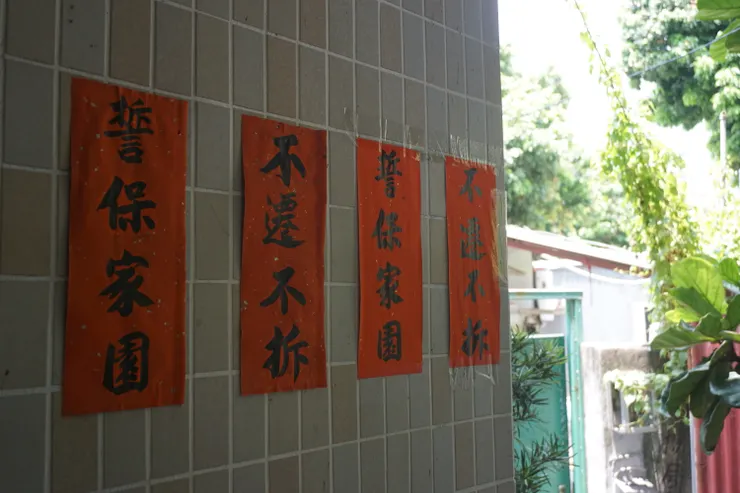 誓保家園
不遷不拆
誓保家園
不遷不拆